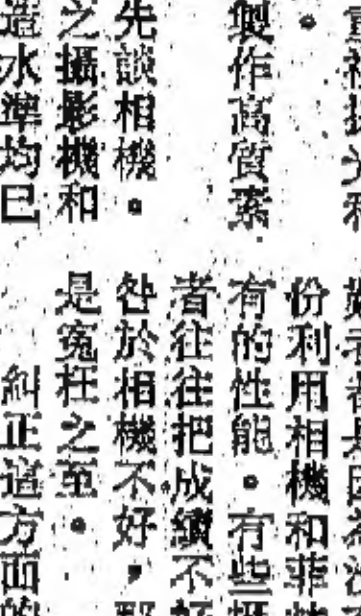 。
製作高質素
先談相機。
之攝影機和
造水準均已
者是因為
份利用相機和菲
有的性能。有些
者往往把成績不好
咎於相機不好，
是寃枉之至。
糾正這方面的